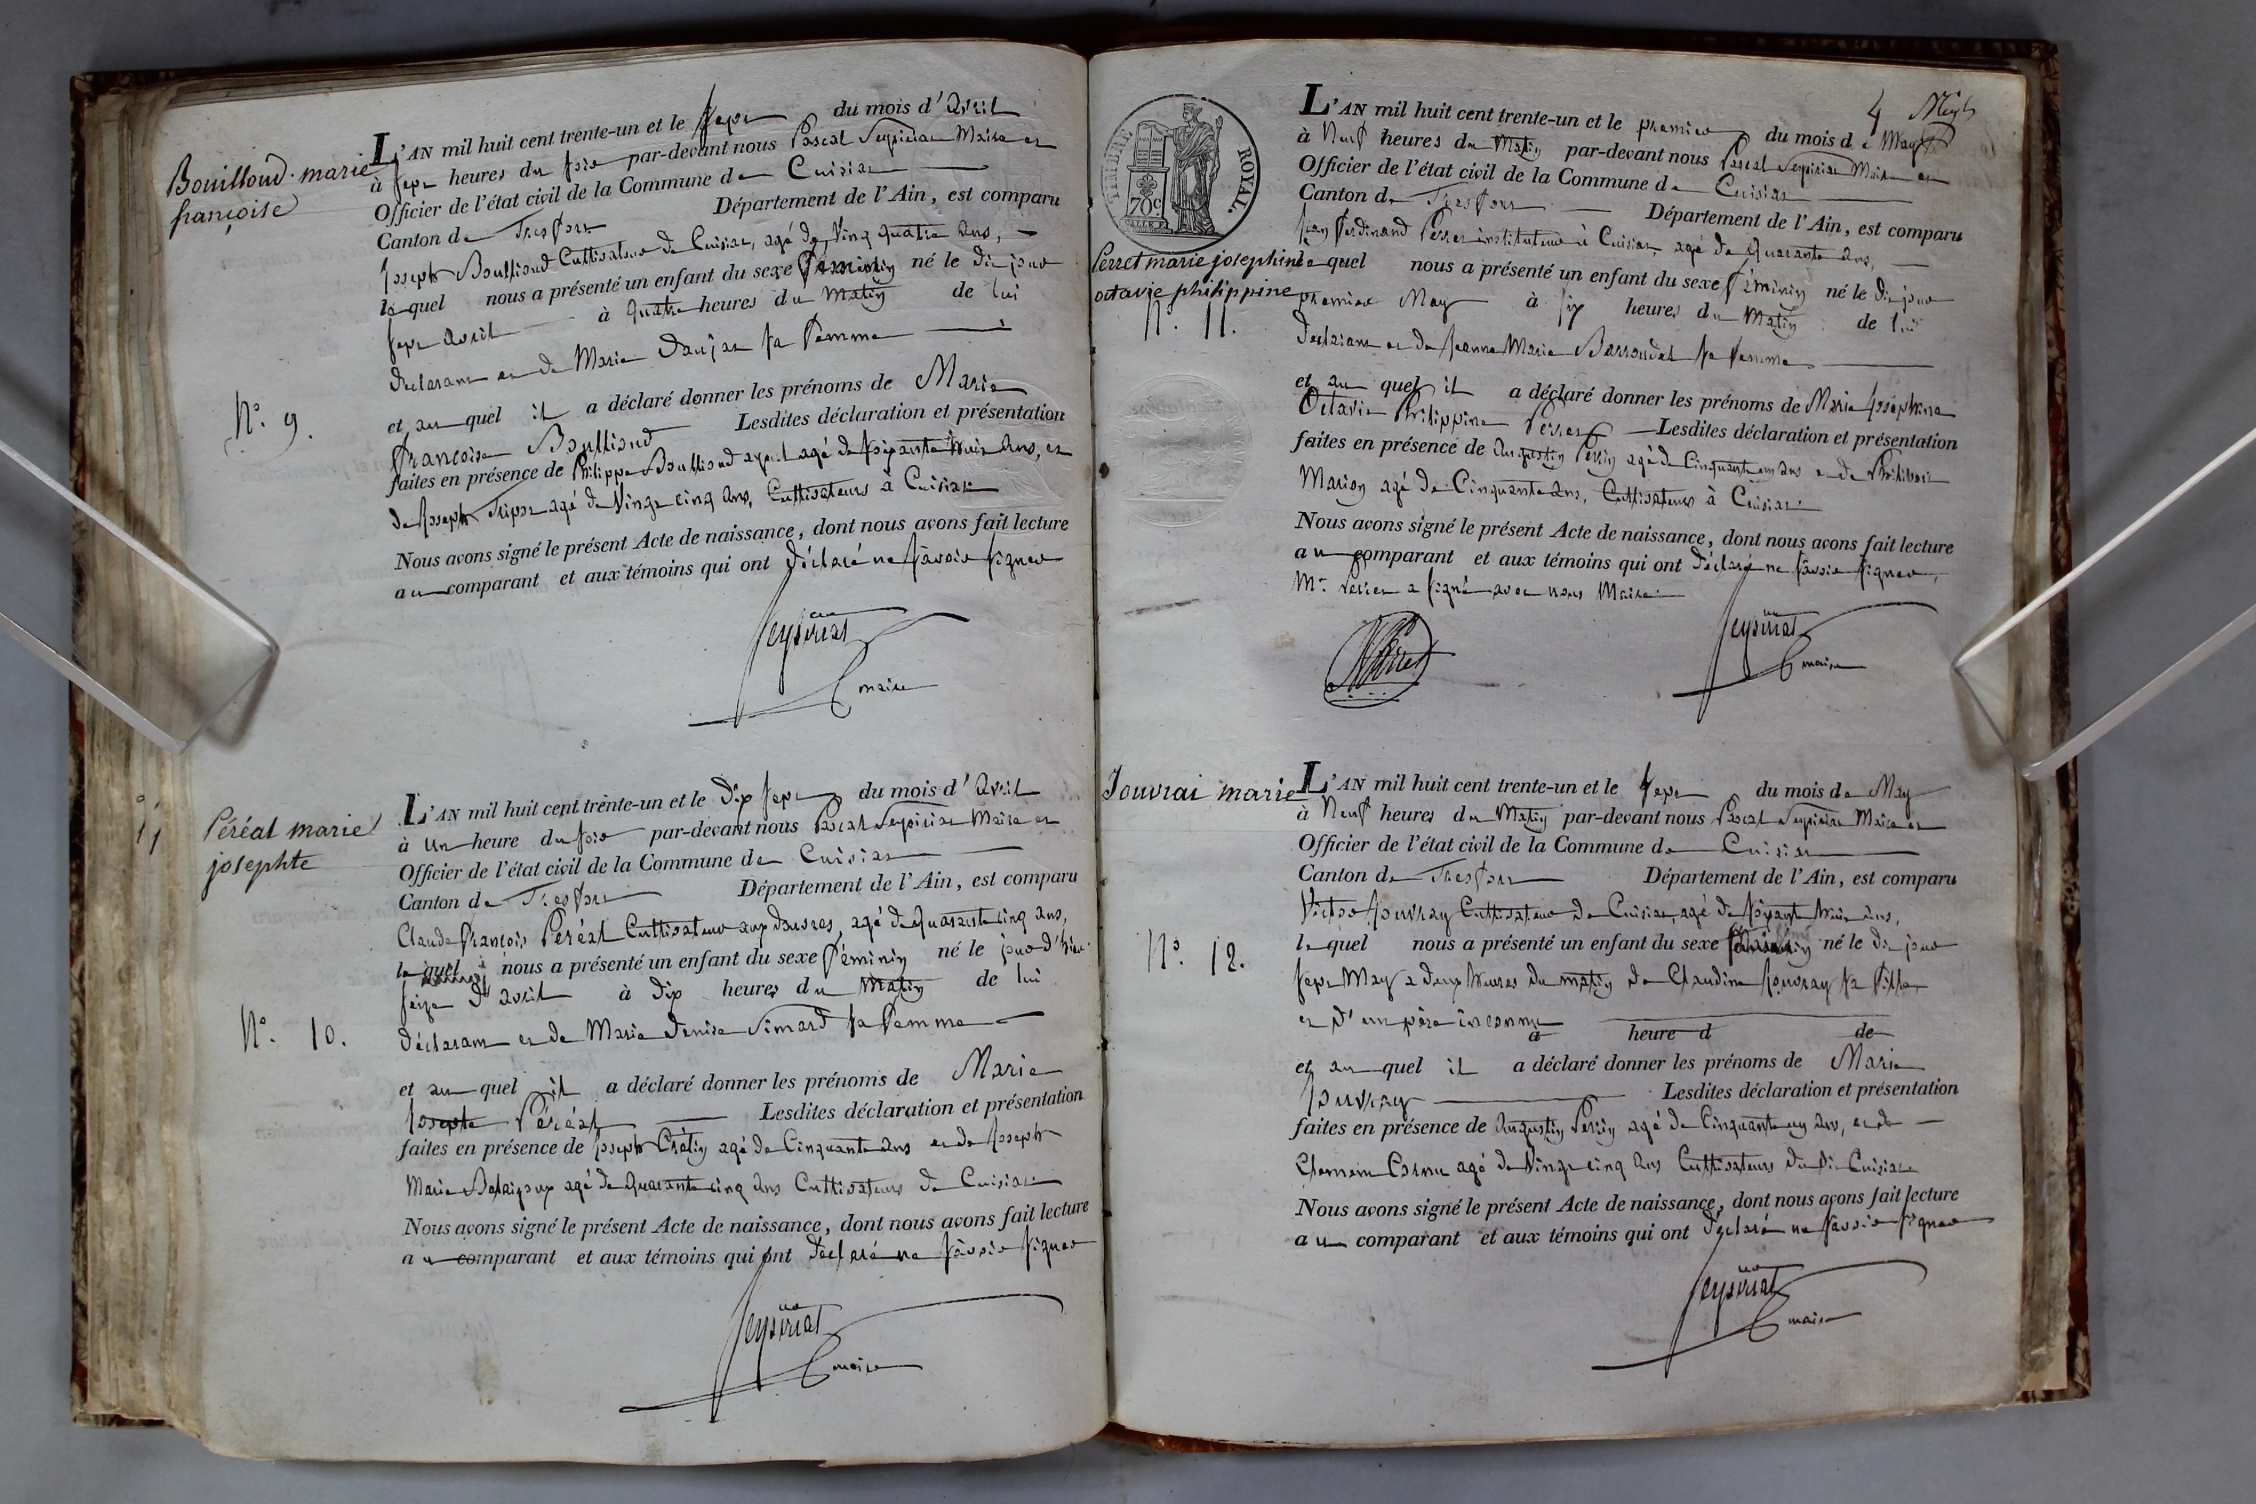 Bouilloud marie
françoise
N.° 9.
L'AN mil huit cent trente-un et le sept du mois d'avril
à sept heures du soir par-devant nous Pascal Seyvirat Maire et
Officier de l'état civil de la Commune de Cuisiat
Canton de Treffort Département de l'Ain, est comparu
Joseph Boullioud Cultivateur de Cuisiat, agé de vingt quatre ans,
le quel nous a présenté un enfant du sexe féminin né le dit jour
sept avril à quatre heures du matin de lui
declarant et de Marie Daujat sa femme
et au quel il a déclaré donner les prénoms de Marie
francoise Boullioud Lesdites déclaration et présentation
faites en présence de Philippe Boullioud ayeul agé de soixante huit ans, et
de Joseph agé de vingt cinq ans, Cultivateurs à Cuisiat
Nous avons signé le présent Acte de naissance, dont nous avons fait lecture
au comparant et aux témoins qui ont déclaré ne sâvoir signer
Seyvirat
maire
Péréal marie
josephte
N.° 10.
L'AN mil huit cent trente-un et le dix sept du mois d'avril
à un heure du soir par-devant nous Pascal Seyvirat Maire et
Officier de l'état civil de la Commune de Cuisiat
Canton de Treffort Département de l'Ain, est comparu
Claude françois Peréal Cultivateur aux agé de quarante cinq ans,
le quel nous a présenté un enfant du sexe féminin né le jour d'hier
seize d'avril à dix heures du matin de lui
déclarant et de Marie denise Simard sa femme
et au quel il a déclaré donner les prénoms de Marie
Josepte Péréal Lesdites déclaration et présentation
faites en présence de Joseph Crétin agé de Cinquante ans et de Joseph
Marie agé de quarante cinq ans Cultivateurs de Cuisiat
Nous avons signé le présent Acte de naissance, dont nous avons fait lecture
au comparant et aux témoins qui ont déclaré ne sâvoir signer
Seyvirat
maire
TIMBRE ROYAL.
70c
4
Perret marie josephine
octavie philippine
N.° 11.
L'AN mil huit cent trente-un et le premier du mois de May
à Neuf heures du matin par-devant nous Pascal Seyvirat Maire et
Officier de l'état civil de la Commune de Cuisiat
Canton de Treffort Département de l'Ain, est comparu
Jean ferdinand Perret instituteur à Cuisiat, agé de quarante ans,
le quel nous a présenté un enfant du sexe féminin né le dit jour
premier May à six heures du matin de lui
declarant et de Jeanne Marie Barroudel sa femme
et au quel il a déclaré donner les prénoms de Marie Josephine
Octavie Philippine Perret Lesdites déclaration et présentation
faites en présence de augustin Perrin agé de Cinquante un ans et de Philibert
Marion agé de Cinquante ans, Cultivateurs à Cuisiat
Nous avons signé le présent Acte de naissance, dont nous avons fait lecture
au comparant et aux témoins qui ont déclaré ne sâvoir signer,
Mr. Perret a signé avec nous Maire
Perret
Seyvirat
maire
Jouvrai marie
N.° 12.
L'AN mil huit cent trente-un et le sept du mois de May
à Neuf heures du matin par-devant nous Pascal Seyvirat Maire et
Officier de l'état civil de la Commune de Cuisiat
Canton de Treffort Département de l'Ain, est comparu
Victor Jouvray Cultivateur de Cuisiat, agé de soixante huit ans,
le quel nous a présenté un enfant du sexe né le dit jour
sept May a deux heures du matin de Claudine Jouvray sa fille
et d'un père inconnu
a heure d de
et au quel il a déclaré donner les prénoms de Marie
Jouvray Lesdites déclaration et présentation
faites en présence de augustin Perrin agé de Cinquante un ans, et de
Clement Cornu agé de vingt cinq ans Cultivateurs du dit Cuisiat
Nous avons signé le présent Acte de naissance, dont nous avons fait lecture
au comparant et aux témoins qui ont déclaré ne sâvoir signer
Seyvirat
maire